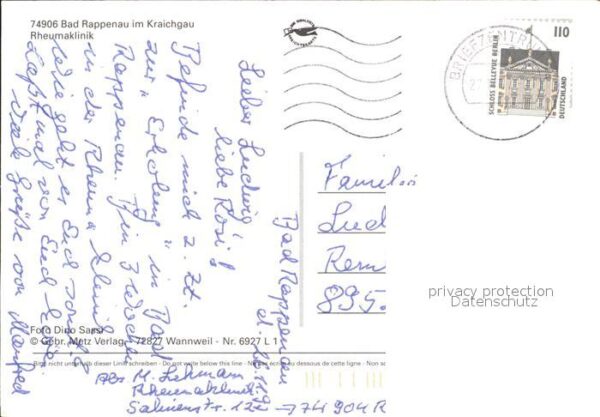 74906 Bad Rappenau im Kraichgau
Rheumaklinik
110
SCHLOSS BELLEVUE BERLIN
DEUTSCHLAND
BRIEFZENTRUM
Bad Rappenau
d.
Lieber Ludwig!
liebe Rosi!
Befinde mich z. Zt.
zur "Erholung" in Bad
Rappenau. Bin 3 Wochen
in der Rheumaklinik.
Wie geht es Euch sonst?
Laßt mal von Euch hören
Viele Grüße von Manfred
Famili
Lud
Rem
895
privacy protection
Datenschutz
Foto Dino Sassi
© Gebr. Metz Verlag, 72827 Wannweil - Nr. 6927 L 1
Bitte nicht unterhalb dieser Linie schreiben - Do not write below this line - Ne pas écrire au dessous de cette ligne - Non sc
Abs M. Lehmann
Rheumaklinik
Salinenstr. 12
→ 74904 R